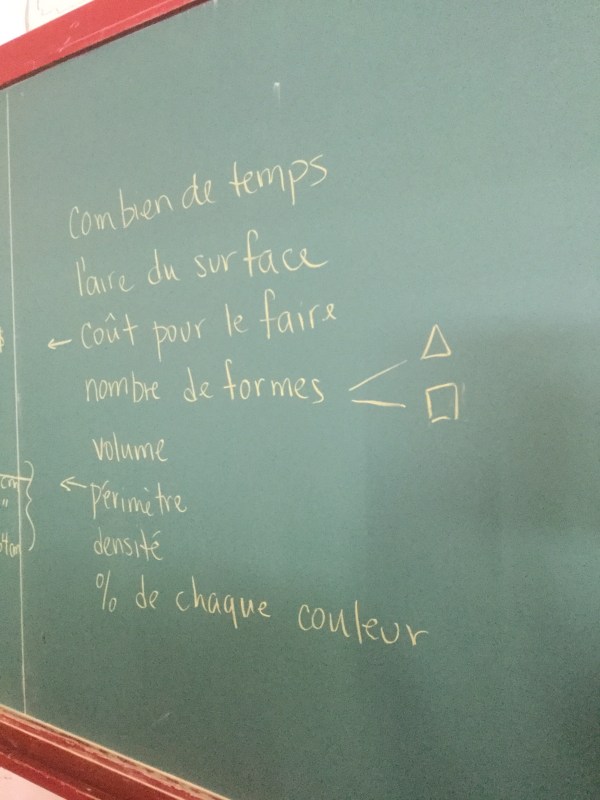 combien de temps
l'aire du surface
← coût pour le faire
nombre de formes
volume
← périmètre
densité
% de chaque couleur